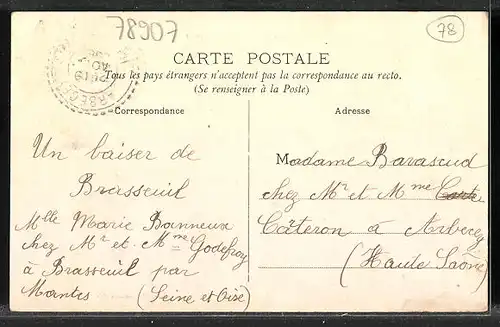 78907
78
CARTE POSTALE
Tous les pays étrangers n'acceptent pas la correspondance au recto.
(Se renseigner à la Poste)
Correspondance
Adresse
Un baiser de
Brasseuil
Mlle Marie Banneux
chez Mr et Mme Godefroy
à Brasseuil par
Mantes (Seine et Oise)
Madame Bavascud
chez Mr et Mme
Câteron à Arbecey
(Haute Saône)